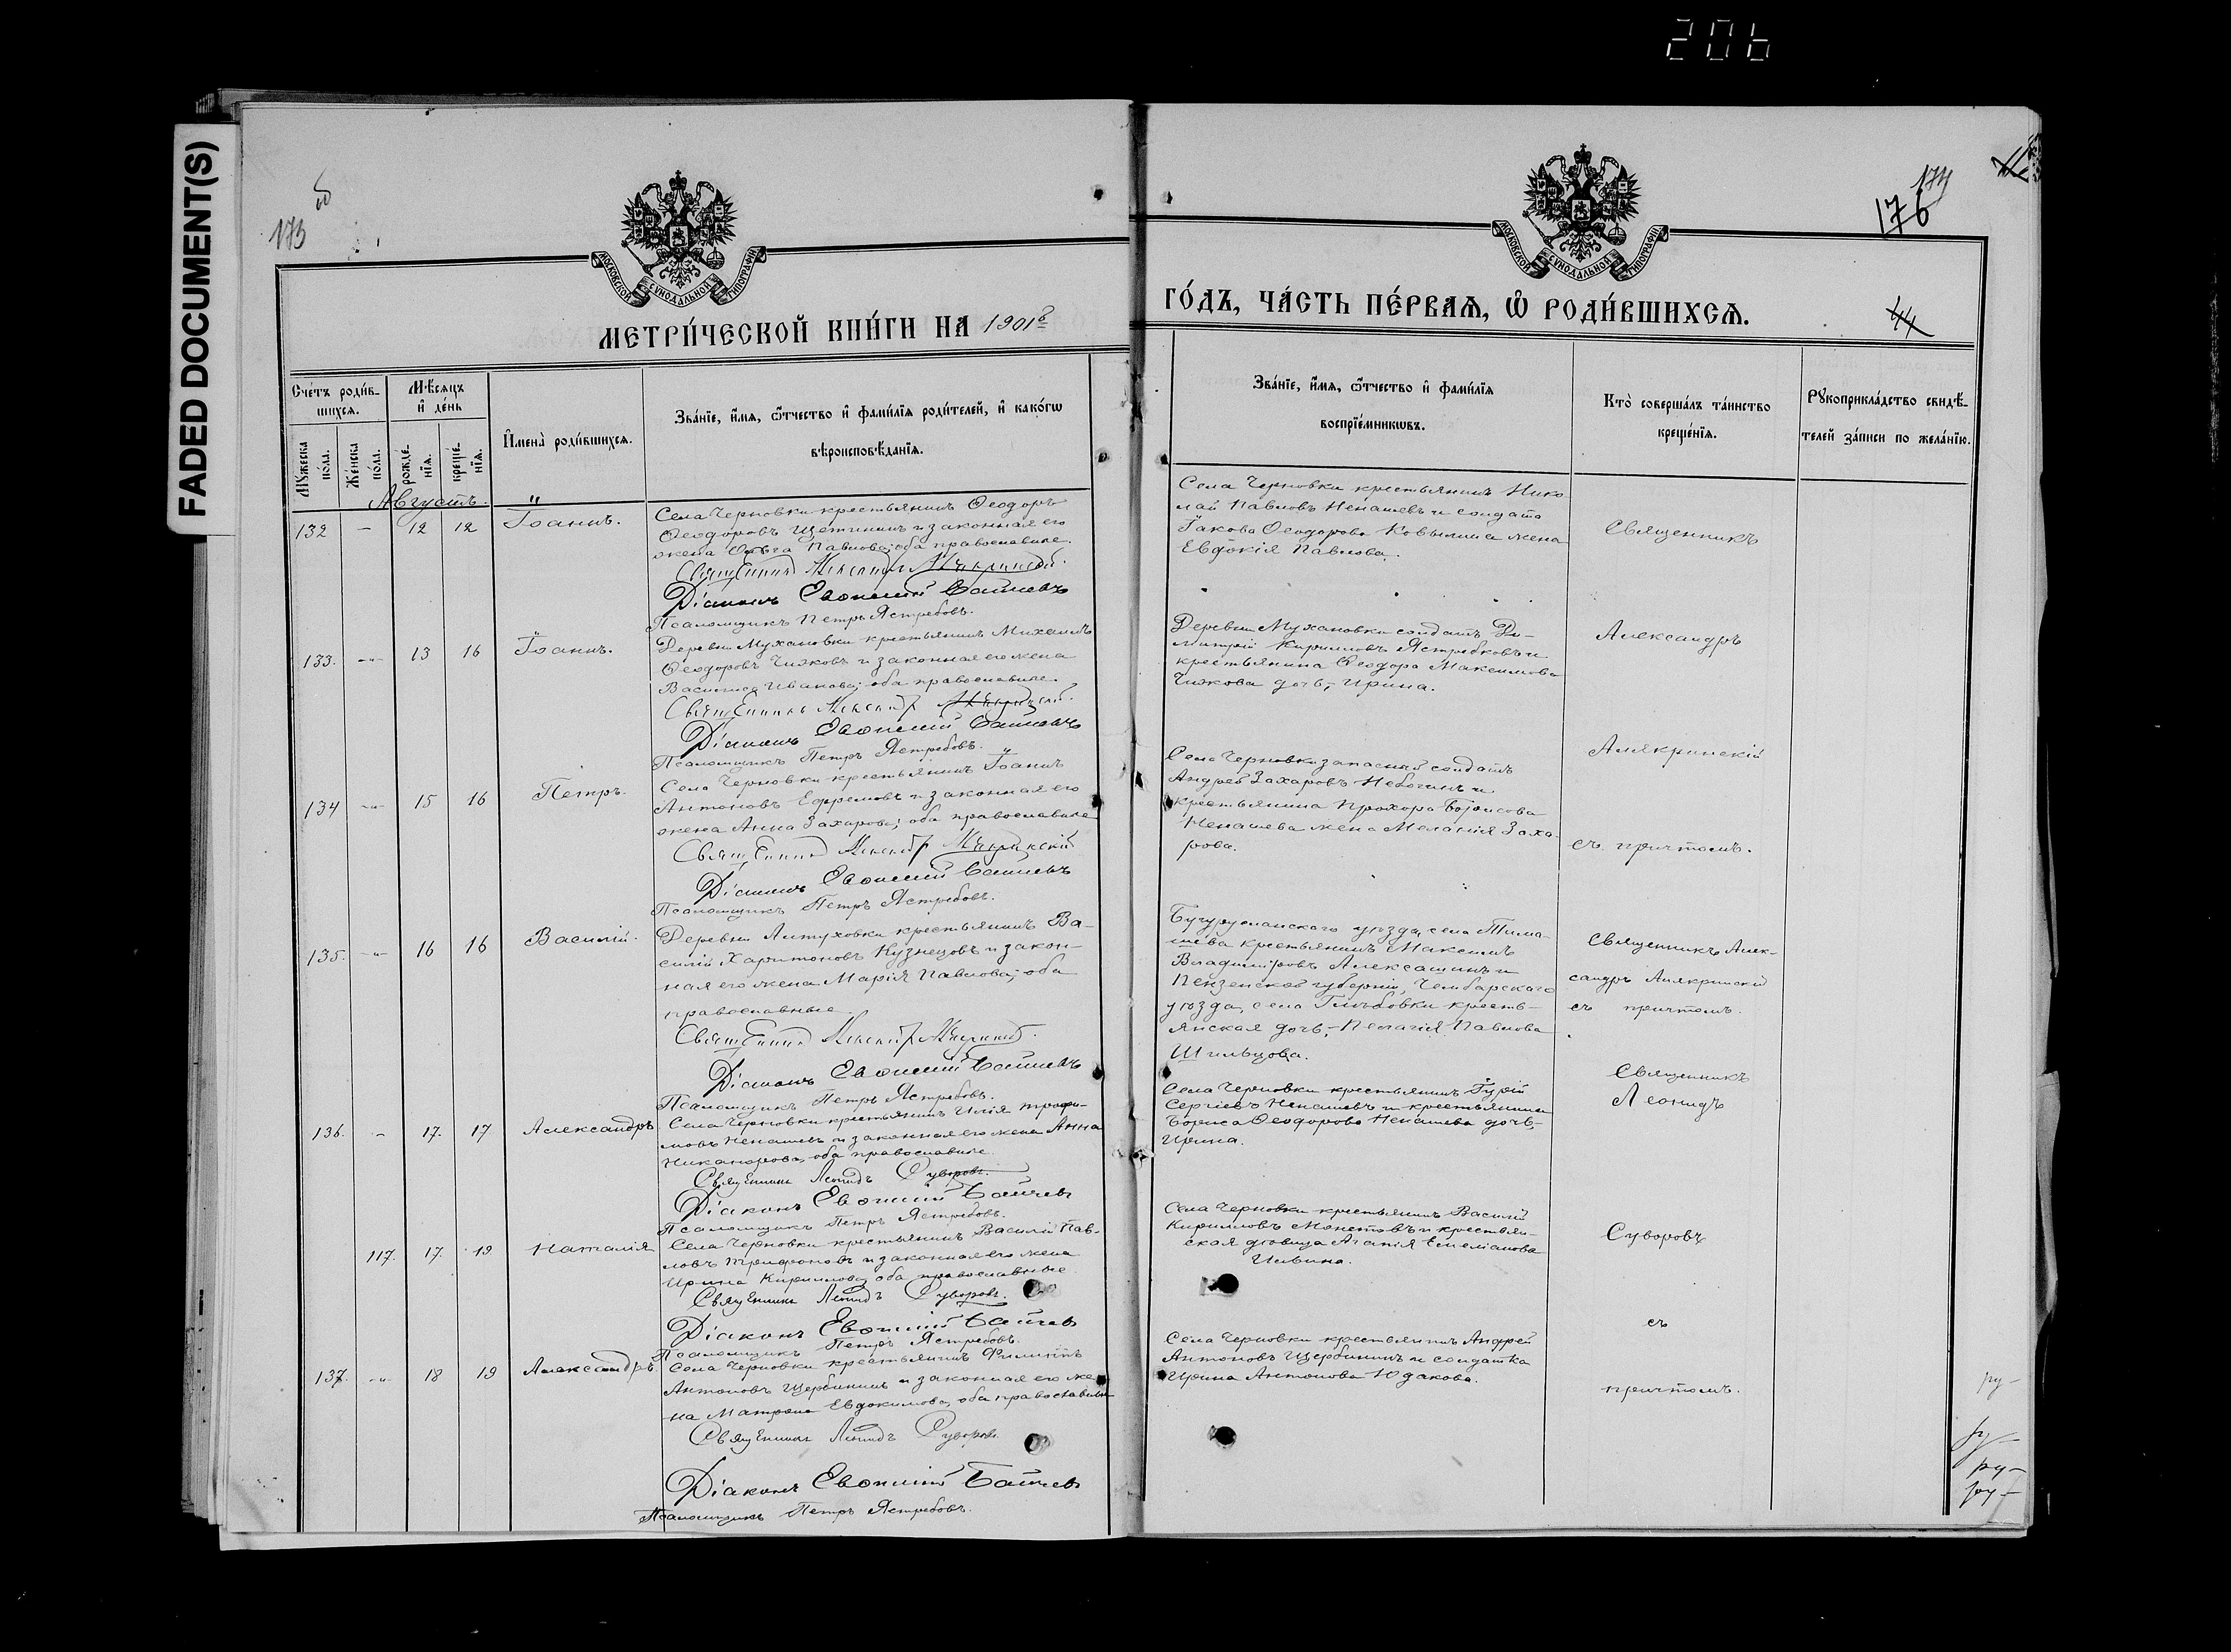 206
FADED DOCUMENT(S)
173
174
176
44
МОСКОВСКОЙ СУНОДАЛЬНОЙ ТИПОГРАФІИ
МОСКОВСКОЙ СУНОДАЛЬНОЙ ТИПОГРАФІИ
МЕТРИ́ЧЕСКОЙ КНИ́ГИ НА 1901й
ГО́ДЪ, ЧА́СТЬ ПЕ́РВАѦ, Ѿ РОДИ́ВШИХСѦ.
Сче́тъ роди́в-
шихсѧ.
Мѣсѧцъ
и҆ де́нь
Мꙋжеска
по́ла.
Же́нска
по́ла.
рожде́-
нїѧ.
креще́-
нїѧ.
И҆мена̀ роди́вшихсѧ.
Зва́нїе, и҆́мѧ, ѻ҆́тчество и҆ фами́лїѧ роди́телей, и҆ како́гѡ
вѣроисповѣ́данїѧ.
Зва́нїе, и҆́мѧ, ѻ҆́тчество и҆ фами́лїѧ
воспрїе́мникѡвъ.
Кто̀ соверша́лъ та́инство
креще́нїѧ.
Рꙋкоприкла́дство свидѣ́-
телей за́писи по жела́нїю.
Августъ.
132 - 12 12 Іоаннъ.
Села Черновки крестьянинъ Ѳеодоръ
Ѳеодоровъ Щетининъ и законная его
жена Ольга Павлова; оба православные.
Священникъ Александръ Алякринскій.
Діаконъ Евѳимій Байчевъ
Псаломщикъ Петръ Ястребовъ.
Села Черновки крестьянинъ Нико
лай Павловъ Ненашевъ и солдата
Іакова Ѳеодорова Ковылина жена
Евдокія Павлова.
Священникъ
133. -"- 13 16 Іоаннъ.
Деревни Мухановки крестьянинъ Михаилъ
Ѳеодоровъ Чижковъ и законная его жена
Василиса Иванова; оба православные.
Священникъ Александръ Алякринскій.
Діаконъ Евѳимій Байчевъ
Псаломщикъ Петръ Ястребовъ.
Деревни Мухановки солдатъ Ди-
митрій Кирилловъ Ястребковъ и
крестьянина Ѳеодора Максимова
Чижкова дочь, Ирина.
Александръ
134 -"- 15 16 Петръ.
Села Черновки крестьянинъ Іоаннъ
Антоновъ Ефремовъ и законная его
жена Анна Захарова; оба православные
Священникъ Александръ Алякринскій
Діаконъ Евѳимій Байчевъ
Псаломщикъ Петръ Ястребовъ.
Села Черновки запасный солдатъ
Андрей Захаровъ Небогинъ и
крестьянина Прохора Борисова
Ненашева жена Меланія Заха-
рова.
Алякринскій
съ причтомъ.
135. -"- 16 16 Василій.
Деревни Алтуховки крестьянинъ Ва-
силій Харитоновъ Кузнецовъ и закон-
ная его жена Марія Павлова; оба
православные.
Священникъ Александръ Алякринскій.
Діаконъ Евѳимій Байчевъ
Псаломщикъ Петръ Ястребовъ.
Бугурусланскаго уѣзда, села Тима-
шева крестьянинъ Максимъ
Владиміровъ Алексашинъ и
Пензенской губерніи, Чембарскаго
уѣзда, села Глѣбовки кресть-
янская дочь, Пелагія Павлова
Шильцова.
Священникъ Алек-
сандръ Алякринскій
съ причтомъ.
136. - 17. 17 Александръ
Села Черновки крестьянинъ Илія Трофи-
мовъ Ненашевъ и законная его жена Анна
Никанорова, оба православные.
Священникъ Леонидъ Суворовъ.
Діаконъ Евѳимій Байчевъ
Псаломщикъ Петръ Ястребовъ.
Села Черновки крестьянинъ Гурій
Сергіевъ Ненашевъ и крестьянина
Бориса Ѳеодорова Ненашева дочь,
Ирина.
Священникъ
Леонидъ
117. 17. 19 Наталія
Села Черновки крестьянинъ Василій Пав-
ловъ Трифоновъ и законная его жена
Ирина Кириллова, оба православные.
Священникъ Леонидъ Суворовъ.
Діаконъ Евѳимій Байчевъ
Псаломщикъ Петръ Ястребовъ.
Села Черновки крестьянинъ Василій
Кирилловъ Монетовъ и крестьян-
ская дѣвица Агапія Емеліанова
Ильина.
Суворовъ
съ
137. -"- 18 19 Александръ
Села Черновки крестьянинъ Филиппъ
Антоновъ Щербининъ и законная его же
на Матрона Евдокимова, оба православные
Священникъ Леонидъ Суворовъ.
Діаконъ Евѳимій Байчевъ
Псаломщикъ Петръ Ястребовъ.
Села Черновки крестьянинъ Андрей
Антоновъ Щербининъ и солдатка
Ирина Антонова Юдакова.
причтомъ.
ру-
ру-
ру-
ру-